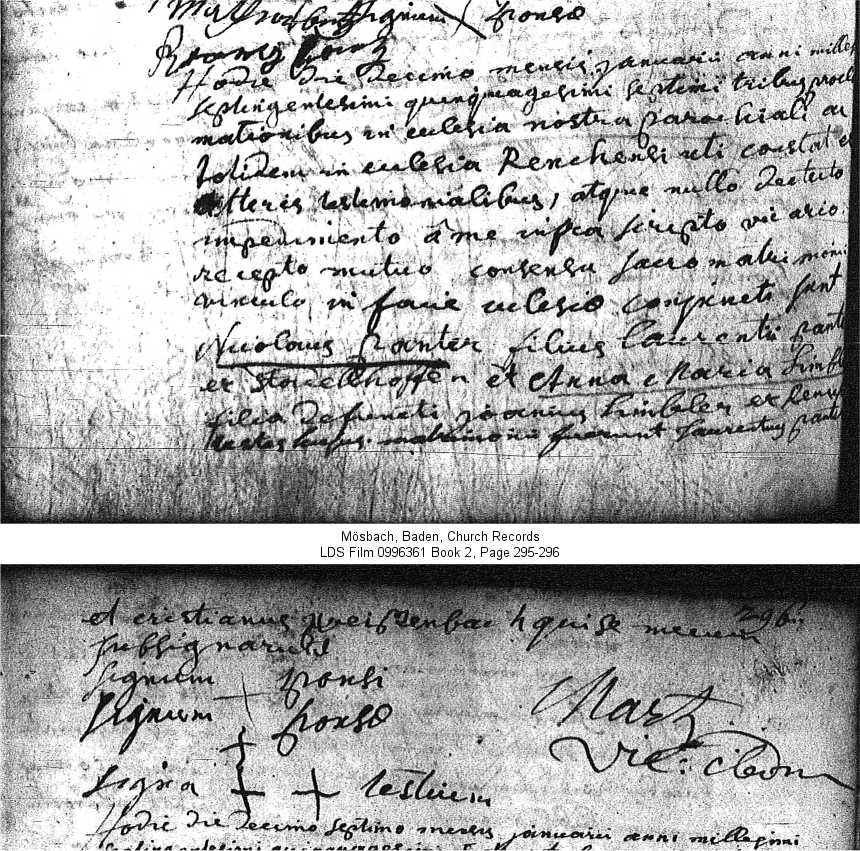 signum sponsæ
Hodie die decimo mensis januarii anni milles
septingentesimi quinquagesimi septimi tribus procla
mationibus in eclesia nostra parochiali ac
totidem in eclesia Renchensi uti constat e
litteris testimonialibus, atque nullo detecto
impedimento à me infra scripto vicario
recepto mutuo consensu sacro matrimonii
vinculo in facie eclesiæ conjuncti sunt
Nicolaus panter filius laurentii pante
ex stadelhoffen et Anna Maria
filia defuncti joannis ex
testes hujus matrimonii fuerunt laurentius pante
Mösbach, Baden, Church Records
LDS Film 0996361 Book 2, Page 295-296
296
et cristianus weissenbach qui se mecum
subsignarunt
signum + sponsi
signum + sponsæ
Vic:
signa + + testium
Hodie die decimo septimo mensis januarii anni millesimi